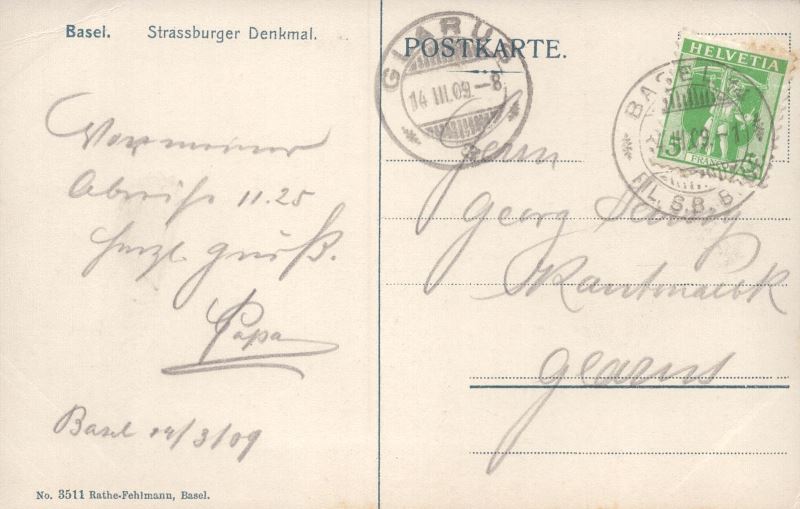 Basel. Strassburger Denkmal.
Vor meiner
Abreise 11.25
herzl Grüß.
Papa
Basel 14/3/09
No. 3511 Rathe-Fehlmann, Basel.
POSTKARTE.
GLARUS
14 III.09.–8
HELVETIA
5 5
FRANCO
BASEL
FIL. S.B.B.
Herrn
Georg
Glarus